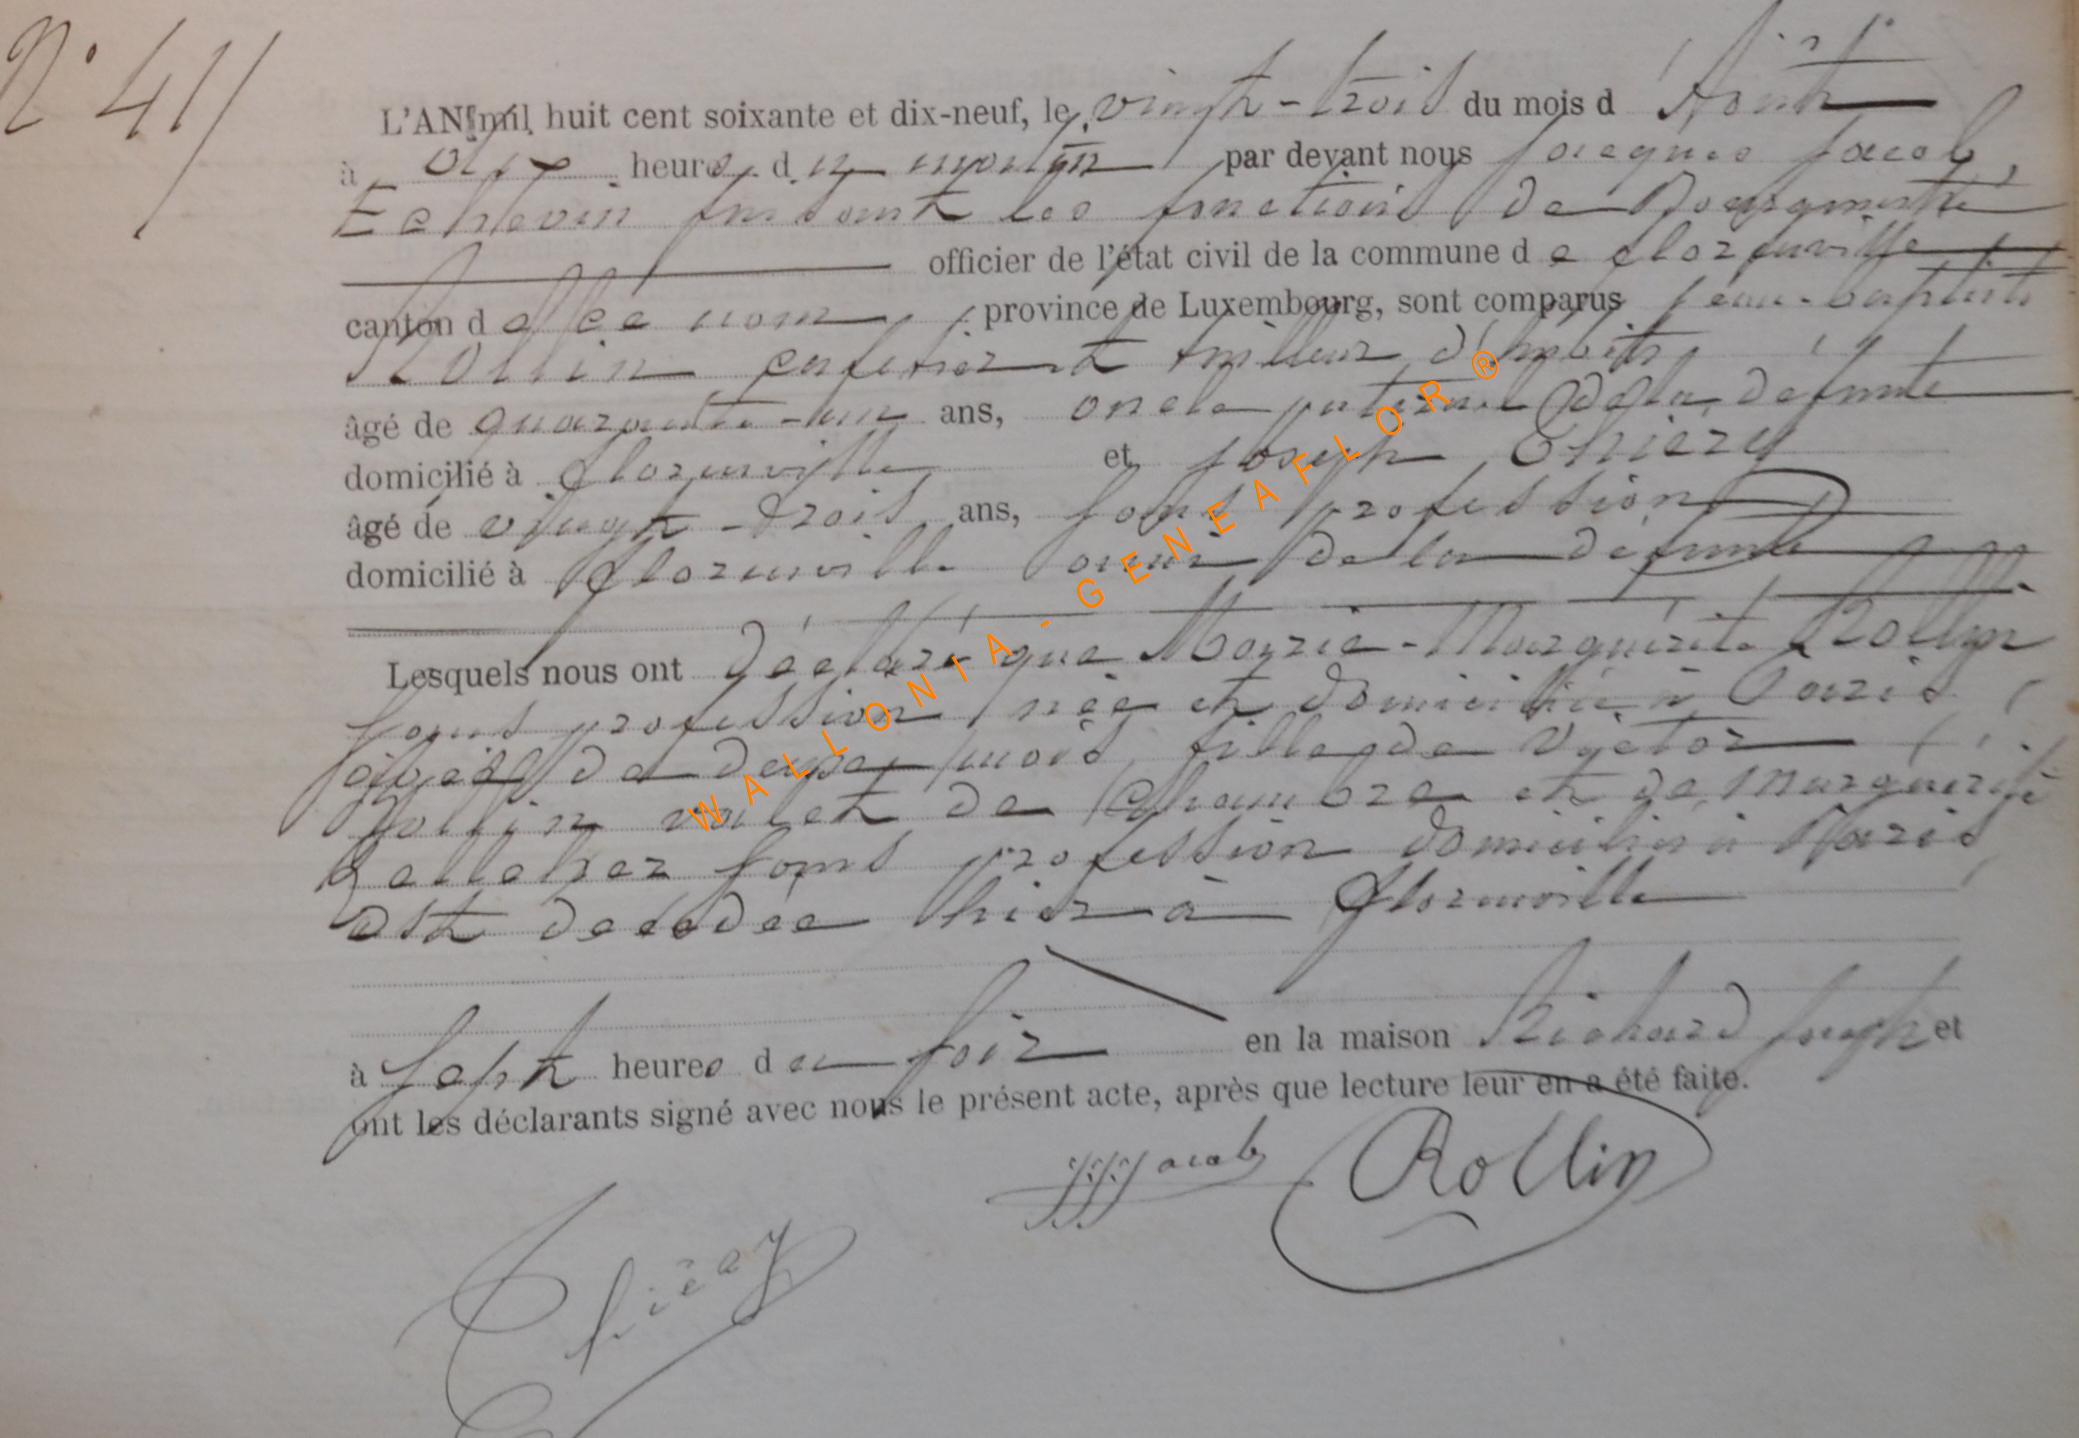 N° 41
L'AN mil huit cent soixante et dix-neuf, le vingt-trois du mois d'Août
à dix heures du matin par devant nous Jacques Jacob,
Echevin faisant les fonctions de Bourgmestre
officier de l'état civil de la commune de Florenville
canton de ce nom, province de Luxembourg, sont comparus Jean-baptiste
Rollin cafetier et tailleur d'habits
âgé de quarante-un ans, oncle paternel de la défunte
domicilié à Florenville et Joseph Thiéry
âgé de vingt-trois ans, sans profession
domicilié à Florenville de la défunte
Lesquels nous ont déclaré que Marie-Marguérite Rollin
sans profession, née et domiciliée à Paris,
âgée de deux mois, fille de Victor
Rollin valet de chambre et de Marguérite
sans profession domiciliés à Paris,
est décédée hier à Florenville
à sept heures du soir en la maison Richard Joseph et
ont les déclarants signé avec nous le présent acte, après que lecture leur en a été faite.
JJJacob Rollin
Thiéry
WALLONIA - GENEAFLOR ®